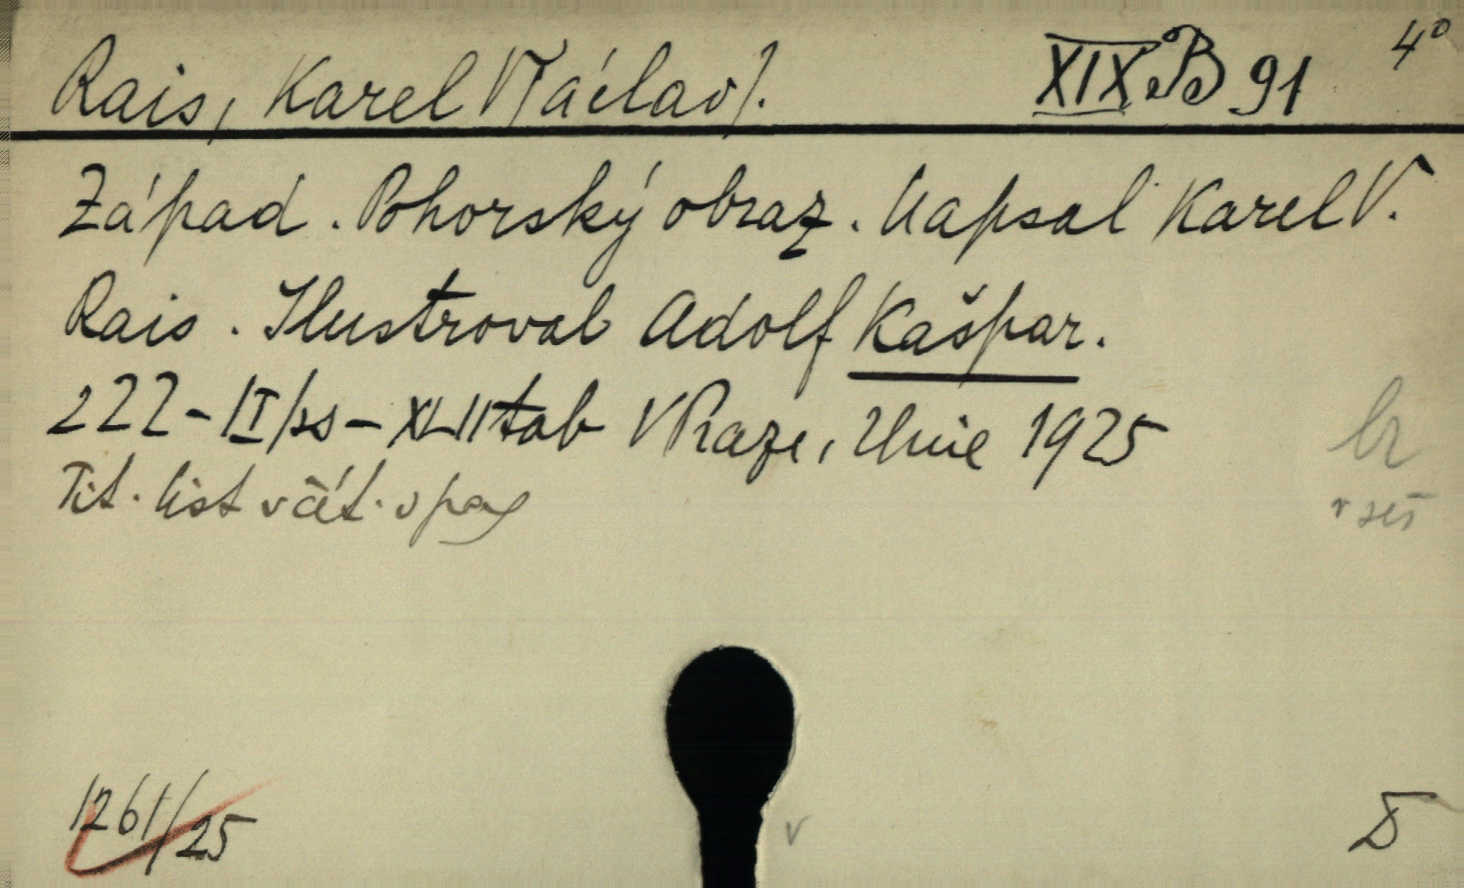 Rais, Karel V[áclav]. XIX B 91 4°
Západ. Pohorský obraz. Napsal Karel V.
Rais. Ilustroval Adolf Kašpar.
222-II/ss-XLII tab V Praze, Unie 1925
Tit. list včet. v pag br
v seš
1261/25 v